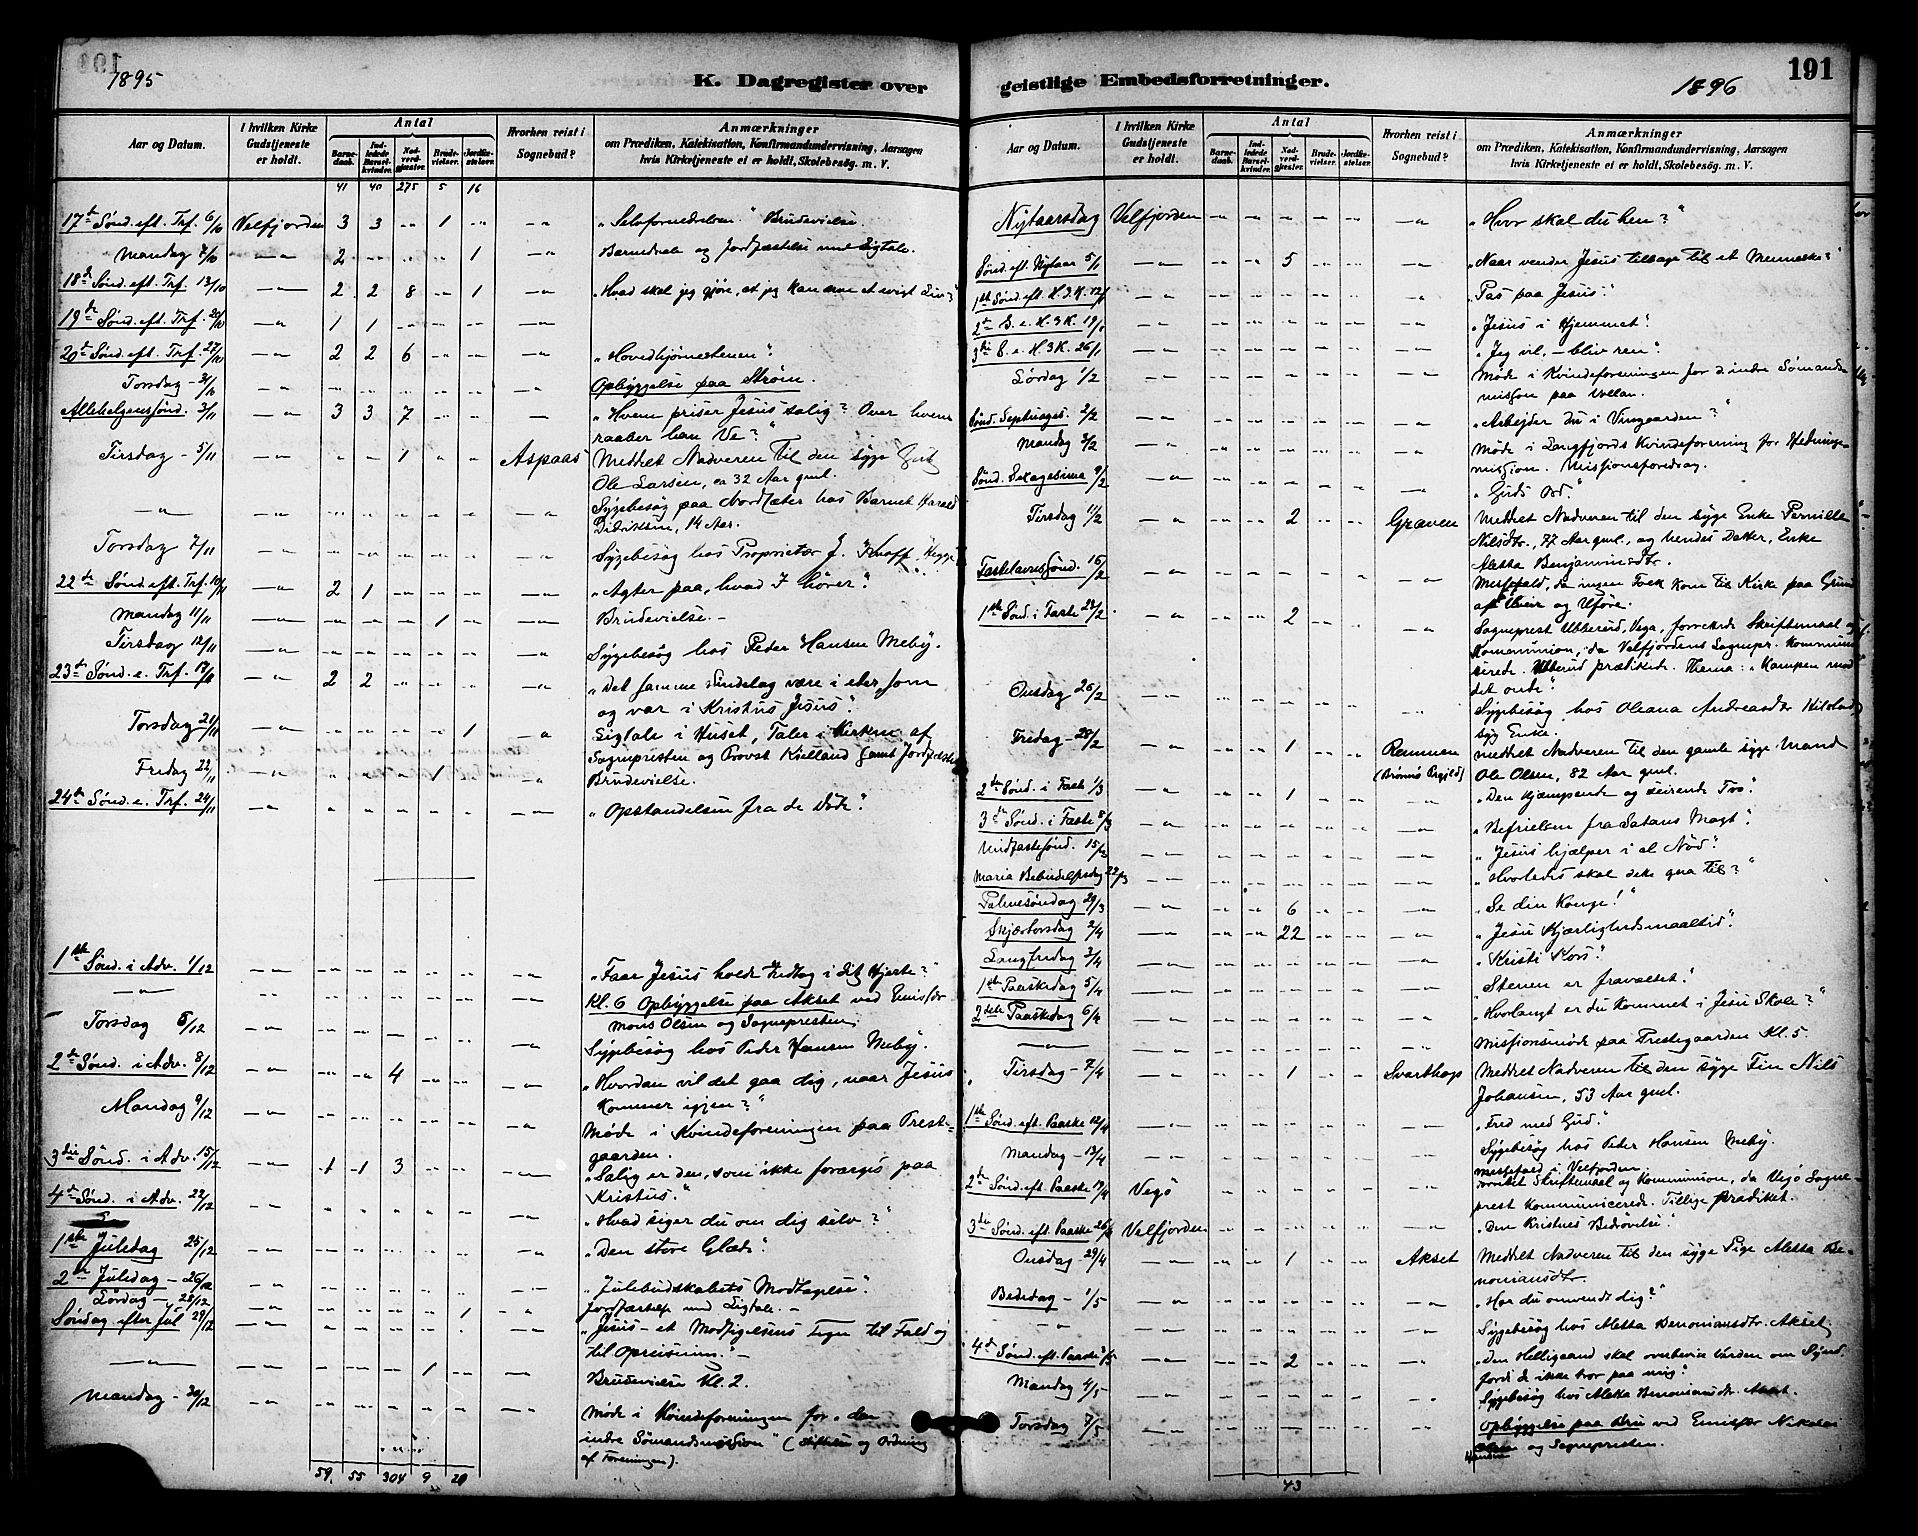 1895
K. Dagregister over
Aar og Datum.
I hvilken Kirke Gudstjeneste er holdt.
Antal
Barnedaab.
Indledede Barselkvinder.
Nadverdgjester.
Brudevielser.
Jordfæstelser.
Hvorhen reist i Sognebud?
Anmærkninger
om Prædiken, Katekisation, Konfirmandundervisning, Aarsagen
hvis Kirketjeneste ei er holdt, Skolebesøg. m. V.
41 40 275 5 16
17de Sønd. eft. Trf. 6/10 Velfjorden 3 3 1 "Selvfornedrelsen." Brudevielse.
Mandag 7/10 2 1 Barnedaab og Jordfæstelse med Ligtale.
18de Sønd. eft. Trf. 13/10 2 2 8 1 "Hvad skal jeg gjøre, at jeg kan arve et evigt Liv?"
19de Sønd. eft. Trf. 20/10 1 1
20de Sønd. eft. Trf. 27/10 2 2 6 "Hovedhjørnestenen".
Torsdag 31/10 Opbyggelse paa Strøm.
Allehelgenssønd. 3/11 3 3 7 "Hvem priser Jesus salig? Over hvem
raaber han Ve?"
Tirsdag 5/11 1 Aspaas Meddelt Nadveren til den syge
Ole Larsen, ca 32 Aar gml.
Sygebesøg paa hos Barnet Harald
14 Aar.
Torsdag 7/11 Sygebesøg hos Proprietær J. Knoff,
22de Sønd. eft. Trf. 10/11 2 1 "Agter paa, hvad I hører".
Mandag 11/11 1 Brudevielse.
Tirsdag 12/11 Sygebesøg hos Peder Hansen Meby.
23de Sønd. e. Trf. 17/11 2 2 "Det samme Sindelag være i eder, som
og var i Kristus Jesus".
Torsdag 21/11 1 Ligtale i Huset, Taler i Kirken af
Sognepresten og Provst Kielland samt Jordfæstelse
Fredag 22/11 1 Brudevielse.
24de Sønd. e. Trf. 24/11 "Opstandelsen fra de Døde".
1ste Sønd. i Adv. 1/12 "Faar Jesus holde Indtog i dit Hjerte?"
Kl. 6 Opbyggelse paa Akset ved Emisfær
Mons Olsen og Sognepresten.
Torsdag 5/12 Sygebesøg hos Peder Hansen Meby.
2de Sønd. i Adv. 8/12 4 "Hvordan vil det gaa dig, naar Jesus
kommer igjen?"
Mandag 9/12 Møde i Kvindeforeningen paa Prest-
gaarden.
3die Sønd. i Adv. 15/12 1 1 3 "Salig er den, som ikke forarges paa
Kristus."
4de Sønd. i Adv. 22/12 "Hvad siger du om dig selv?"
1ste Juledag 25/12 "Den store Glæde".
2den Juledag 26/12 "Julebudskabets Modtagelse".
Lørdag 28/12 1 Jordfæstelse med Ligtale.
Søndag efter Jul 29/12 "Jesus et Modsigelsens Tegn til Fald og
til Opreisning."
1 Brudevielse Kl. 2.
Mandag 30/12 Møde i Kvindeforeningen for "den
indre Sømandsmission" (Stiftelse og Ordning
af Foreningen).
59 55 304 9 20
geistlige Embedsforretninger.
1896
191
Aar og Datum.
I hvilken Kirke Gudstjeneste er holdt.
Antal
Barnedaab.
Indledede Barselkvinder.
Nadverdgjester.
Brudevielser.
Jordfæstelser.
Hvorhen reist i Sognebud?
Anmærkninger
om Prædiken, Katekisation, Konfirmandundervisning, Aarsagen
hvis Kirketjeneste ei er holdt, Skolebesøg. m. V.
Nytaarsdag Velfjorden "Hvor skal du hen?"
Sønd. eft. Nytaar 5/1 5 "Naar vender Jesus tilbage til et Menneske?"
1ste Sønd. eft. H.3.K. 12/1 "Pas paa Jesus".
2de S. e. H.3K. 19/1 "Jesus i Hjemmet".
3die S. e. H.3K. 26/1 "Jeg vil, – bliv ren".
Lørdag 1/2 Møde i Kvindeforeningen for d. indre Sømands-
mission paa
Sønd. Septuages. 2/2 "Arbejder du i Vingaarden?"
Mandag 3/2 Møde i Langfjords Kvindeforening for Hedninge-
mission. Missionsforedrag.
Sønd. Sexagesima 9/2 "Guds Ord."
Tirsdag 11/2 2 Græven Meddelt Nadveren til den syge Enke Pernille
Nilsdtr., 77 Aar gml., og hendes Datter, Enke
Aletta Benjaminsdtr.
Fastelavnssønd. 16/2 Messefald, da ingen Folk kom til Kirke paa Grund
af Uveir og Uføre.
1ste Sønd. i Faste 23/2 2 Sogneprest Ubberud, Vega, forrettede Skriftemaal og
Kommunion, da Velfjordens Sognepr. kommuni-
cerede. Ubberud prædikede. Thema: "Kampen mod
det onde".
Onsdag 26/2 Sygebesøg hos Oleana Andreasdtr
syg Enke.
Fredag 28/2 1 (Brønnø Prgjld) Meddelt Nadveren til den gamle syge Mand
Ole Olsen, 82 Aar gml.
2den Sønd. i Faste 1/3 1 "Den kjæmpende og seirende Tro".
3die Sønd. i Faste 8/3 "Befrielsen fra Satans Magt".
Midfastesønd. 15/3 "Jesus hjælper i al Nød".
Maria Bebudelsesdag 22/3 "Hvorledes skal dette gaa til?"
Palmesøndag 29/3 6 "Se din Konge!"
Skjærtorsdag 2/4 22 "Jesu Kjærlighedsmaaltid".
Langfredag 3/4 "Kristi Kors".
1ste Paaskedag 5/4 "Stenen er fravæltet".
2den Paaskedag 6/4 "Hvorlangt er du kommet i Jesu Skole?"
Missionsmøde paa Prestegaarden Kl. 5.
Tirsdag 7/4 1 Svarthop Meddelt Nadveren til den syge Fin Nils
Johansen, 53 Aar gml.
1ste Sønd. eft. Paaske 12/4 "Fred med Gud".
Mandag 13/4 Sygebesøg hos Peter Hansen Meby.
Messefald i Velfjorden
2den Sønd. eft. Paaske 19/4 Vegø Forrettet Skriftemaal og Kommunion, da Vegø Sogne-
prest kommunicerede. Tillige prædiket.
3die Sønd. eft. Paaske 26/4 Velfjorden "Den Kristnes Bedrøvelse".
Onsdag 29/4 1 Akset Meddelt Nadveren til den syge Pige Aletta Be-
noniansdtr.
Bededag 1/5 "Har du omvendt dig?"
Sygebesøg hos Aletta Benoniansdtr. Akset.
4de Sønd. eft. Paaske 3/5 2 "Den Helligaand skal overbevise Verden om Synd,
fordi de ikke tror paa mig".
Mandag 4/5 Sygebesøg hos Aletta Benoniansdtr. Akset.
Torsdag 7/5 Opbyggelse paa ved Emisfær Nikolai
Hansen og Sognepresten.
43